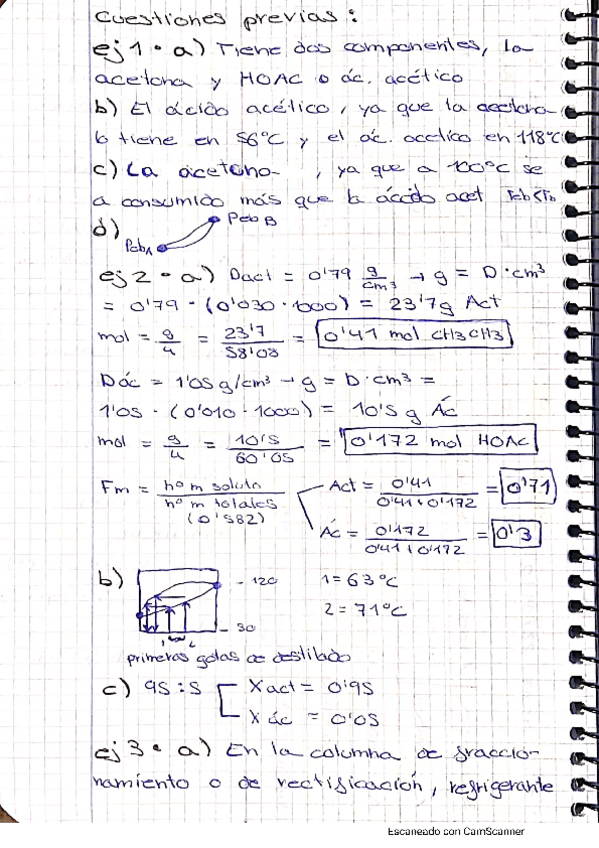 Cuestiones previas:
ej 1 • a) Tiene dos componentes, la
acetona y HOAC o ác. acético
b) El ácido acético, ya que la acetona
lo tiene en 56°C y el ác. acético en 118°C
c) La acetona, ya que a 100°C se
a consumido más que la ácido acet Teb<Tb
d) PebA PebB
ej 2 • a) Dact = 0'79 g/cm³ → g = D·cm³
= 0'79 · (0'030 · 1000) = 23'7g Act
mol = g/M = 23'7/58'08 = 0'41 mol CH3CH3
Dác = 1'05 g/cm³ → g = D·cm³ =
1'05 · (0'010 · 1000) = 10'5 g Ác
mol = g/M = 10'5/60'05 = 0'172 mol HOAc
Fm = nº m soluto / nº m totales (0'582)
Act = 0'41 / 0'41+0'172 = 0'71
Ác = 0'172 / 0'41+0'172 = 0'3
b) - 120 1 = 63°C
- 50 2 = 71°C
1 2
primeras gotas de destilado
c) 95:5 Xact = 0'95
X ác = 0'05
ej 3 • a) En la columna de fraccio-
namiento o de rectificación, refrigerante
Escaneado con CamScanner